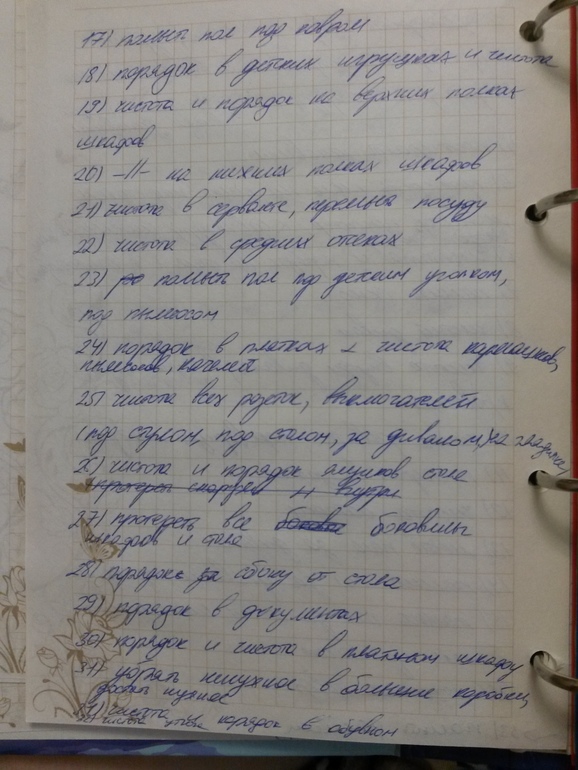 17) помыть пол под ковром
18) порядок в детских игрушках и чистота
19) чистота и порядок на верхних полках
шкафов
20) -//- на нижних полках шкафов
21) чистота в серванте, перемыть посуду
22) чистота в средних отсеках
23) помыть пол под детским уголком,
под пылесосом
24) порядок в платках + чистота карандашей,
25) чистота всех розеток, выключателей
(под стулом, под столом, за диваном,
26) чистота и порядок ящиков стола
27) протереть все боковины
шкафов и стола
28) порядок сбоку от стола
29) порядок в документах
30) порядок и чистота в платяном шкафу
31) убрать ненужное в большие коробки,
достать нужное
чистота
порядок в обувном